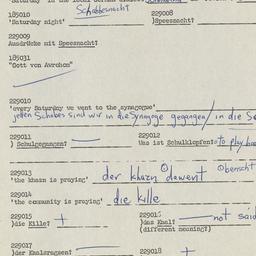 Schabbesnacht
185010 229008
'Saturday night' )Speesnacht?
229009
Ausdrücke mit Speesnacht?
185031
"Gott von Avrohom"
229010
'every Saturday we went to the synagogue'
jeden Schabes sind wir in die Synagoge gegangen / in die
229011 229012
) Schulgegangen? Was ist Schulklopfen? to play
229013 der khazn dawent
'the khazn is praying'
229014 die kille
'the community is praying'
229015 229016
)die Kille? + )das Khal? not said
(different meaning?)
229017 229018
)der Khalsragsen? +